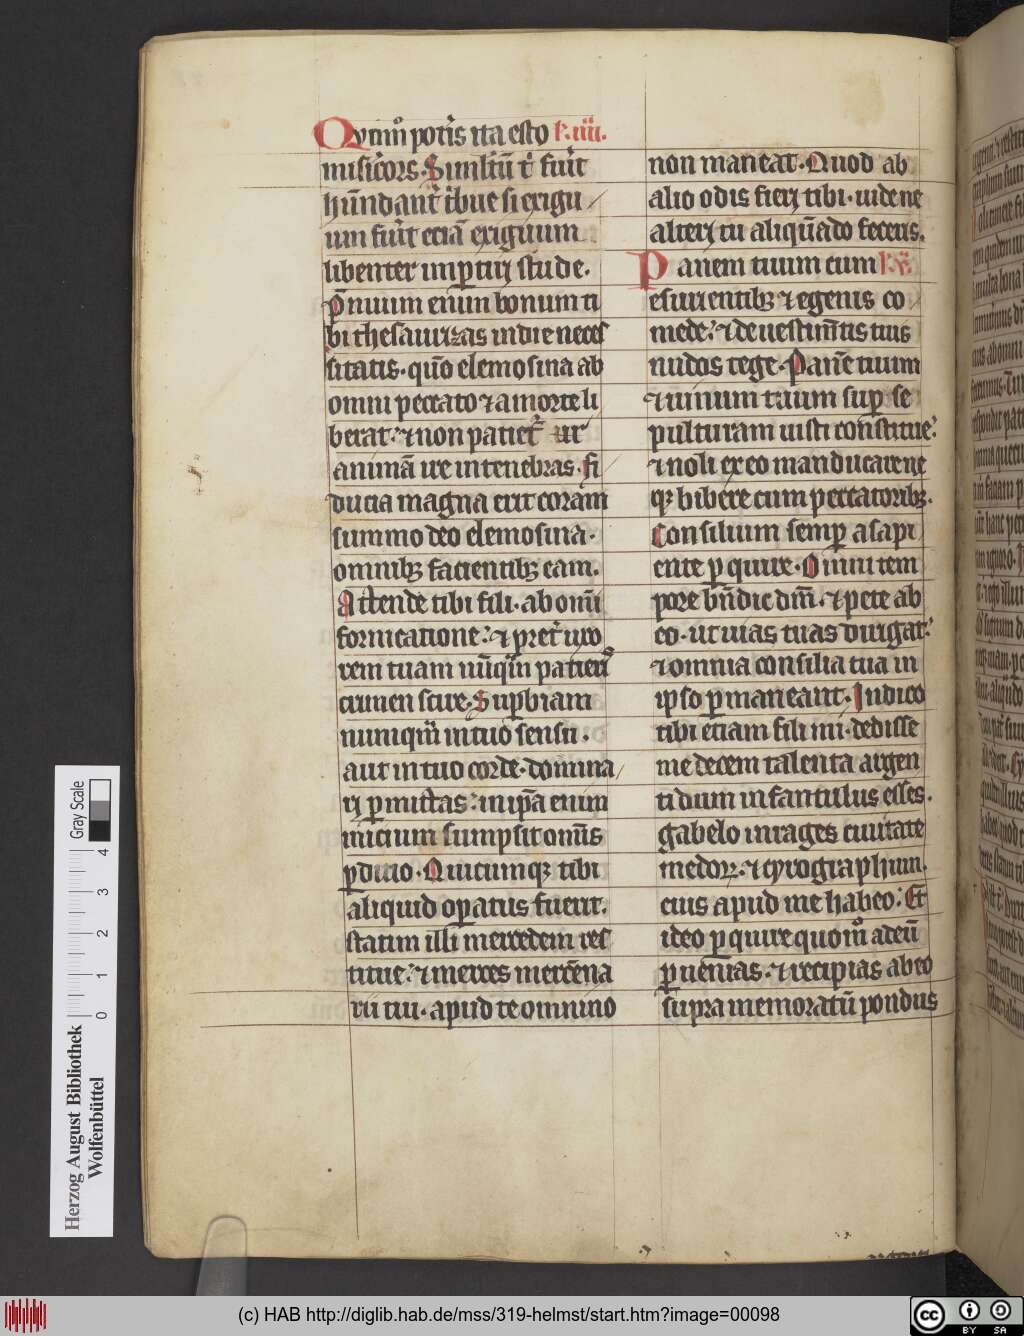 Quōm̄o pot͛is ita esto k᷑. iiii.
mis̄icors. Si multū t᷑ fu͛it
hūndant͛ t᷑bue si exigu
um fu͛it eciā exiguum
libenter imp̲tiri stude.
p̄mium enim bonum ti
bi thesaurizas in die neces
sitatis. quō elemosina ab
omni peccato ⁊ a morte li
berat: ⁊ non patiet᷑ ut
animā ire in tenebras. fi
ducia magna erit coram
summo deo elemosina.
omnibꝫ facientibꝫ eam.
Attende tibi fili. ab om̄i
fornicatione: ⁊ pret͛ uxo
rem tuam nūq̄m patier͛
crimen scire. Sup̲biam
numq̄m in tuo sensu.
aut in tuo corde. domina
ri p̲mittas: in ip̄a enim
inicium sumpsit om̄is
p̲dicio. Quicumqꝫ tibi
aliquid op̲atus fuerit.
statim illi mercedem res
titue: ⁊ merces mercēna
rii tui. apud te omnino
non maneat. Quod ab
alio odis fieri tibi. uide ne
alteri tu aliqūado feceris.
Panem tuum cum
esurientibꝫ ⁊ egenis co
mede: ⁊ de uestim̄tis tuis
nudos tege. Panē tuum
⁊ uinum tuum sup̲ se
pulturam iusti constitue:
⁊ noli ex eo manducare ne
qꝫ bibere cum peccatoribꝫ.
Consilium semp̲ a sapi
ente p̲quire. Omni tem
pore bn̄dic dm̄. ⁊ pete ab
eo. ut uias tuas dirigat:
⁊ omnia consilia tua in
ipso p̲maneant. Indico
tibi etiam fili mi. dedisse
me decem talenta argen
ti dum infantulus esses.
gabelo in rages ciuitate
medoꝝ. ⁊ cyrographum.
eius apud me habeo: Et
ideo p̲quire quom̊ ad eū
p̲uenias. ⁊ recipias ab eo
supra memoratū pondus
Gray Scale
4
3
2
1
0
Herzog August Bibliothek
Wolfenbüttel
(c) HAB http://diglib.hab.de/mss/319-helmst/start.htm?image=00098
cc BY SA